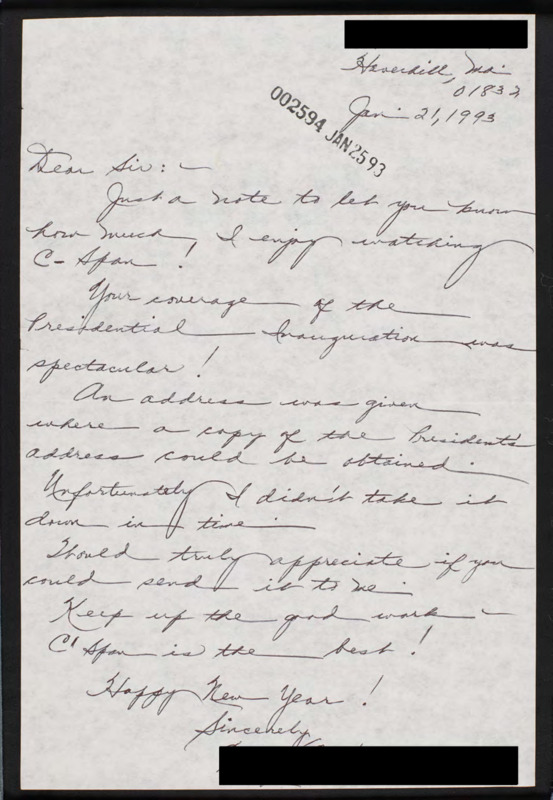 Haverhill, Ma.
01832
Jan. 21, 1993
002594 JAN 25 93
Dear Sir: -
Just a note to let you know
how much, I enjoy watching
C-Span !
Your coverage of the
Presidential Inauguration was
spectacular!
An address was given
where a copy of the President's
address could be obtained.
Unfortunately I didn't take it
down in time.
Would truly appreciate if you
could send it to me.
Keep up the good work -
C' Span is the best!
Happy New Year!
Sincerely